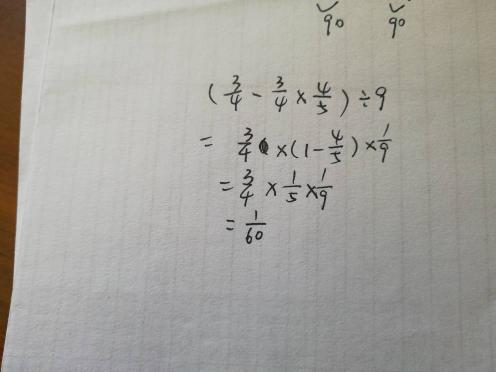 90 90
(3/4 - 3/4 × 4/5) ÷ 9
= 3/4 × (1 - 4/5) × 1/9
= 3/4 × 1/5 × 1/9
= 1/60